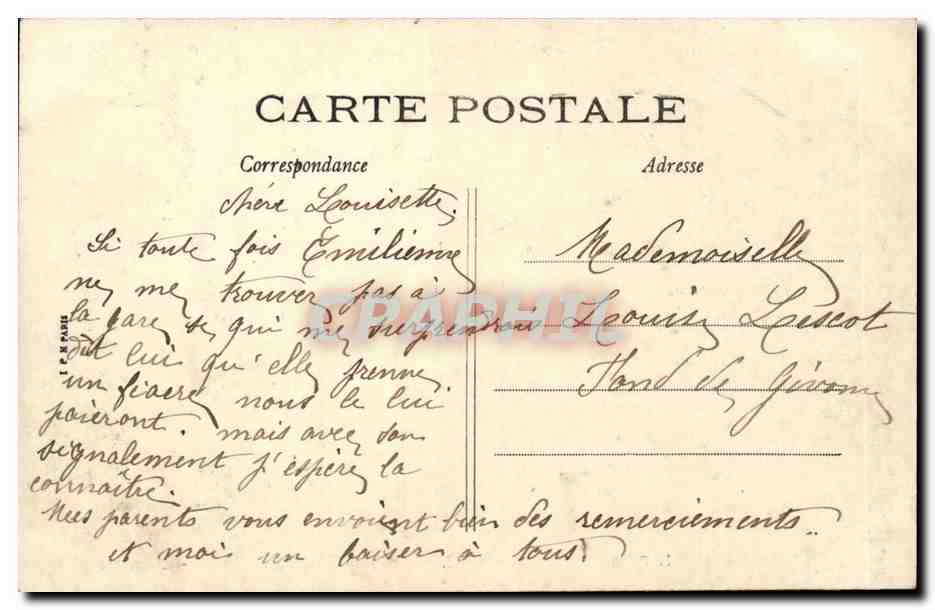 CARTE POSTALE
Correspondance
Adresse
chére Louisette.
Si toute fois Émilienne
ne me trouver pas à
la gare, se qui me surprendrais
dit lui qu'elle prenne
un fiacre nous le lui
paieront. mais avec son
signalement j'espère la
connaître.
Mes parents vous envoient bien des remerciements
et moi un baiser à tous.
Mademoiselle
Louise Lescot
Fond de Givonne
I P M PARIS
CPAPHIL